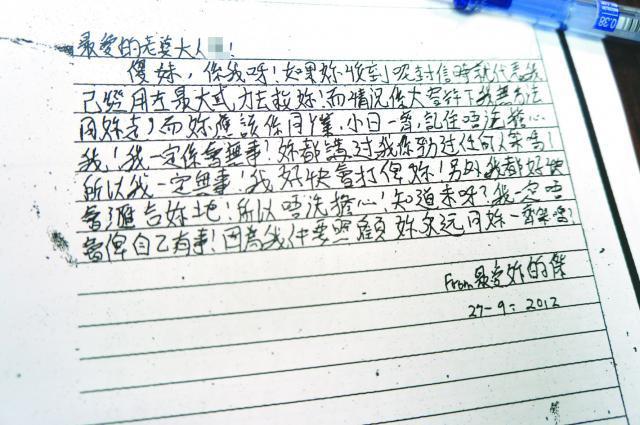 最愛的老婆大人!
傻妹,係我呀!如果妳收到呢封信時就代表我
已經用左最大或力去救妳!而情況係大寄
同妳走!而妳應該係同業,小日一齊,記住唔洗擔心
我!我一定係會無事!妳都講過我係勁過任何人㗎嗎!
所以我一定無事!我好快會打俾妳!另外我都好快
會匯合妳地!所以唔洗擔心!知道未呀?我一定唔
會俾自己有事!因為我仲要照顧妳永远同妳一齊㗎嗎!
From最愛妳的傑
27-9-2012
0.38